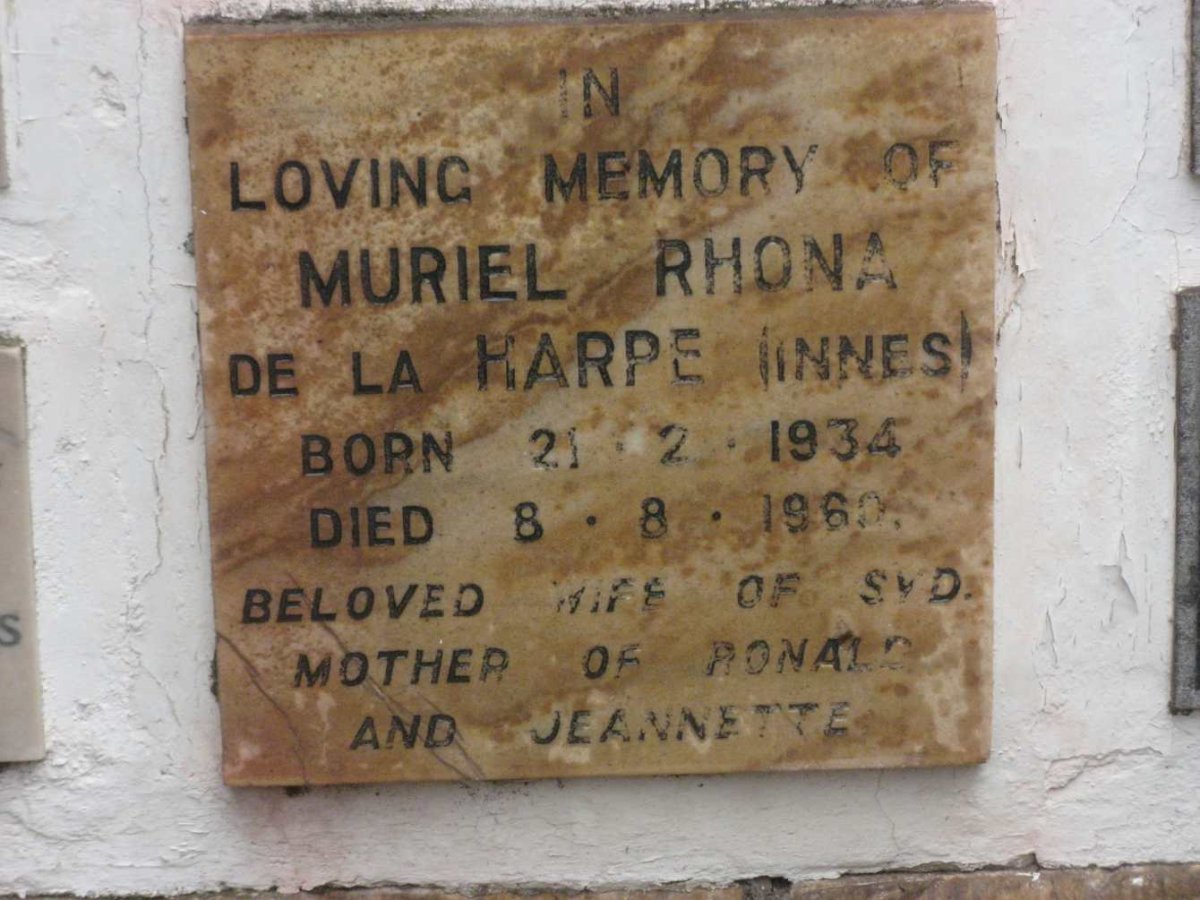 IN
LOVING MEMORY OF
MURIEL RHONA
DE LA HARPE (INNES)
BORN 21 · 2 · 1934
DIED 8 · 8 · 1960.
BELOVED WIFE OF SYD.
MOTHER OF RONALD
AND JEANNETTE
S